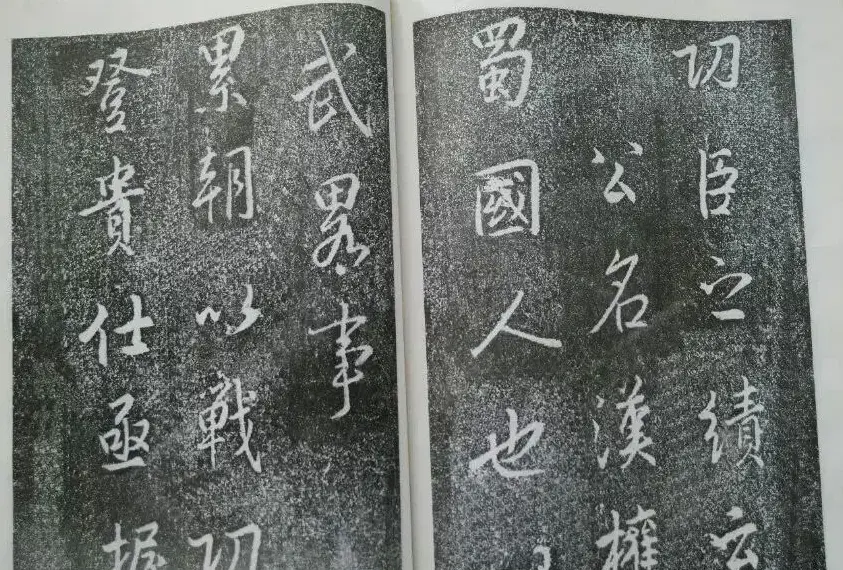 功臣之績云
公名漢權
蜀國人也
武畧事
累朝以戰功
登貴仕亟握